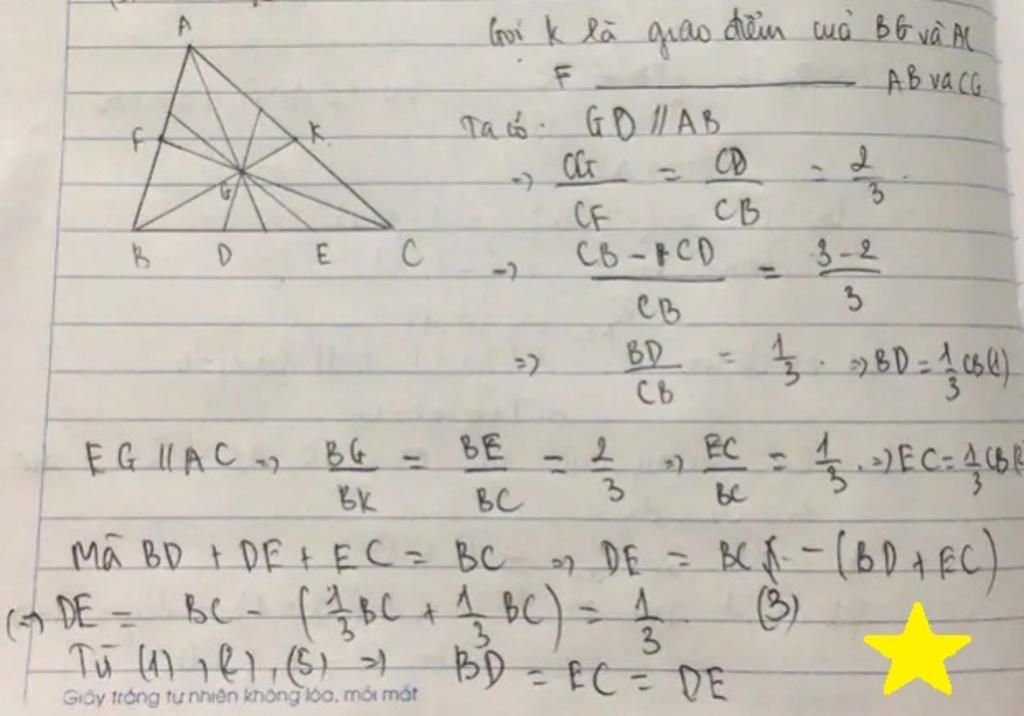 A
Gọi K là giao điểm của BG và AC
F ——— AB và CG
F
K
Ta có: GD // AB
G
=> CG/CF = CD/CB = 2/3.
B D E C
=> CB - CD/CB = 3-2/3
=> BD/CB = 1/3. => BD = 1/3 CB (1)
EG // AC => BG/BK = BE/BC = 2/3 => EC/BC = 1/3. => EC = 1/3 CB (2
Mà BD + DE + EC = BC => DE = BC - (BD + EC)
(=> DE = BC - (1/3 BC + 1/3 BC) = 1/3 (3)
Từ (1), (2), (3) => BD = EC = DE
Giấy trắng tự nhiên không lóa, mỏi mắt